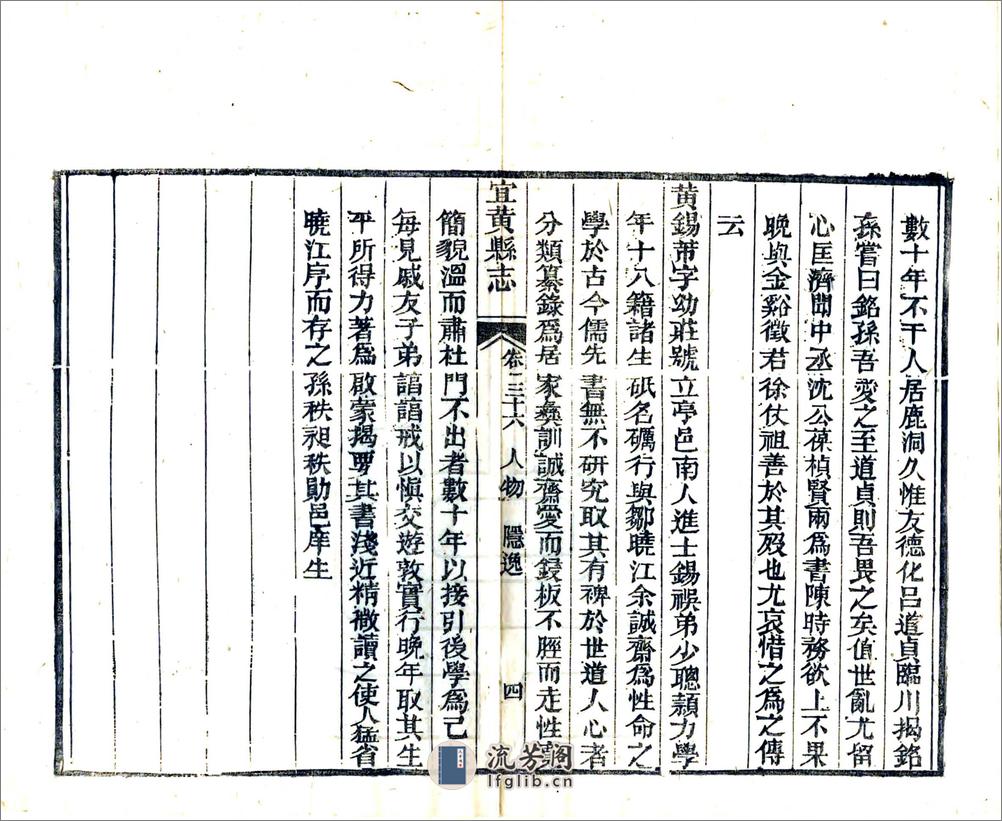 數十年不干人居鹿洞久惟友德化呂道貞臨川揭銘
孫嘗曰銘孫吾愛之至道貞則吾畏之矣值世亂尤留
心匡濟聞中丞沈公葆楨賢兩為書陳時務欲上不果
晚與金谿徵君徐仗祖善於其歿也尤哀惜之為之傳
云
黃錫芾字幼莊號立亭邑南人進士錫祺弟少聰穎力學
年十八籍諸生砥名礪行與鄒曉江余誠齋為性命之
學於古今儒先書無不研究取其有裨於世道人心者
分類纂錄爲居家彝訓誠齋愛而鋟板不脛而走性
宜黃縣志
卷三十六 人物 隱逸 四
簡貌溫而肅杜門不出者數十年以接引後學爲己
每見戚友子弟諳諳戒以愼交遊敦實行晚年取其生
平所得力著爲啟蒙揭要其書淺近精微讀之使人猛省
曉江序而存之孫秩昶秩勛邑庠生
流芳閣
lfglib.cn